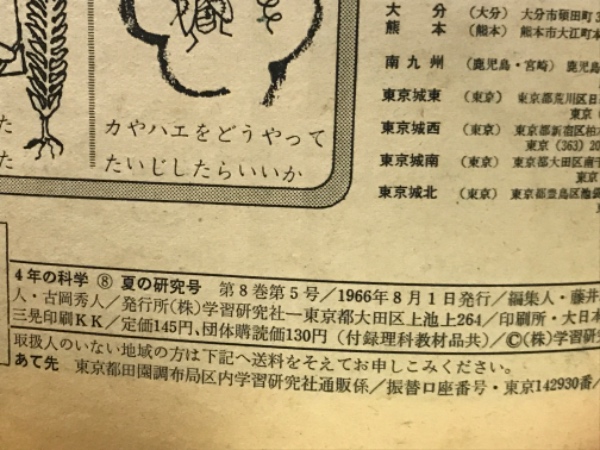 大分 (大分) 大分市碩田町3
熊本 (熊本) 熊本市大江町本
南九州 (鹿児島・宮崎) 鹿児島
東京城東 (東京) 東京都荒川区日
東京
東京城西 (東京) 東京都新宿区柏木
東京 (363) 20
東京城南 (東京) 東京都大田区
東京
東京城北 (東京) 東京都豊島区池袋
東京
た
た
カやハエをどうやって
たいじしたらいいか
4年の科学 ⑧ 夏の研究号 第8巻第5号/1966年8月1日発行/編集人・藤井
人・古岡秀人/発行所(株)学習研究社―東京都大田区上池上264/印刷所・大日本
三晃印刷KK/定価145円、団体購読価130円 (付録理科教材品共)/©(株)学習研究
取扱人のいない地域の方は下記へ送料をそえてお申しこみください。
あて先 東京都田園調布局区内学習研究社通販係/振替口座番号・東京142930番/